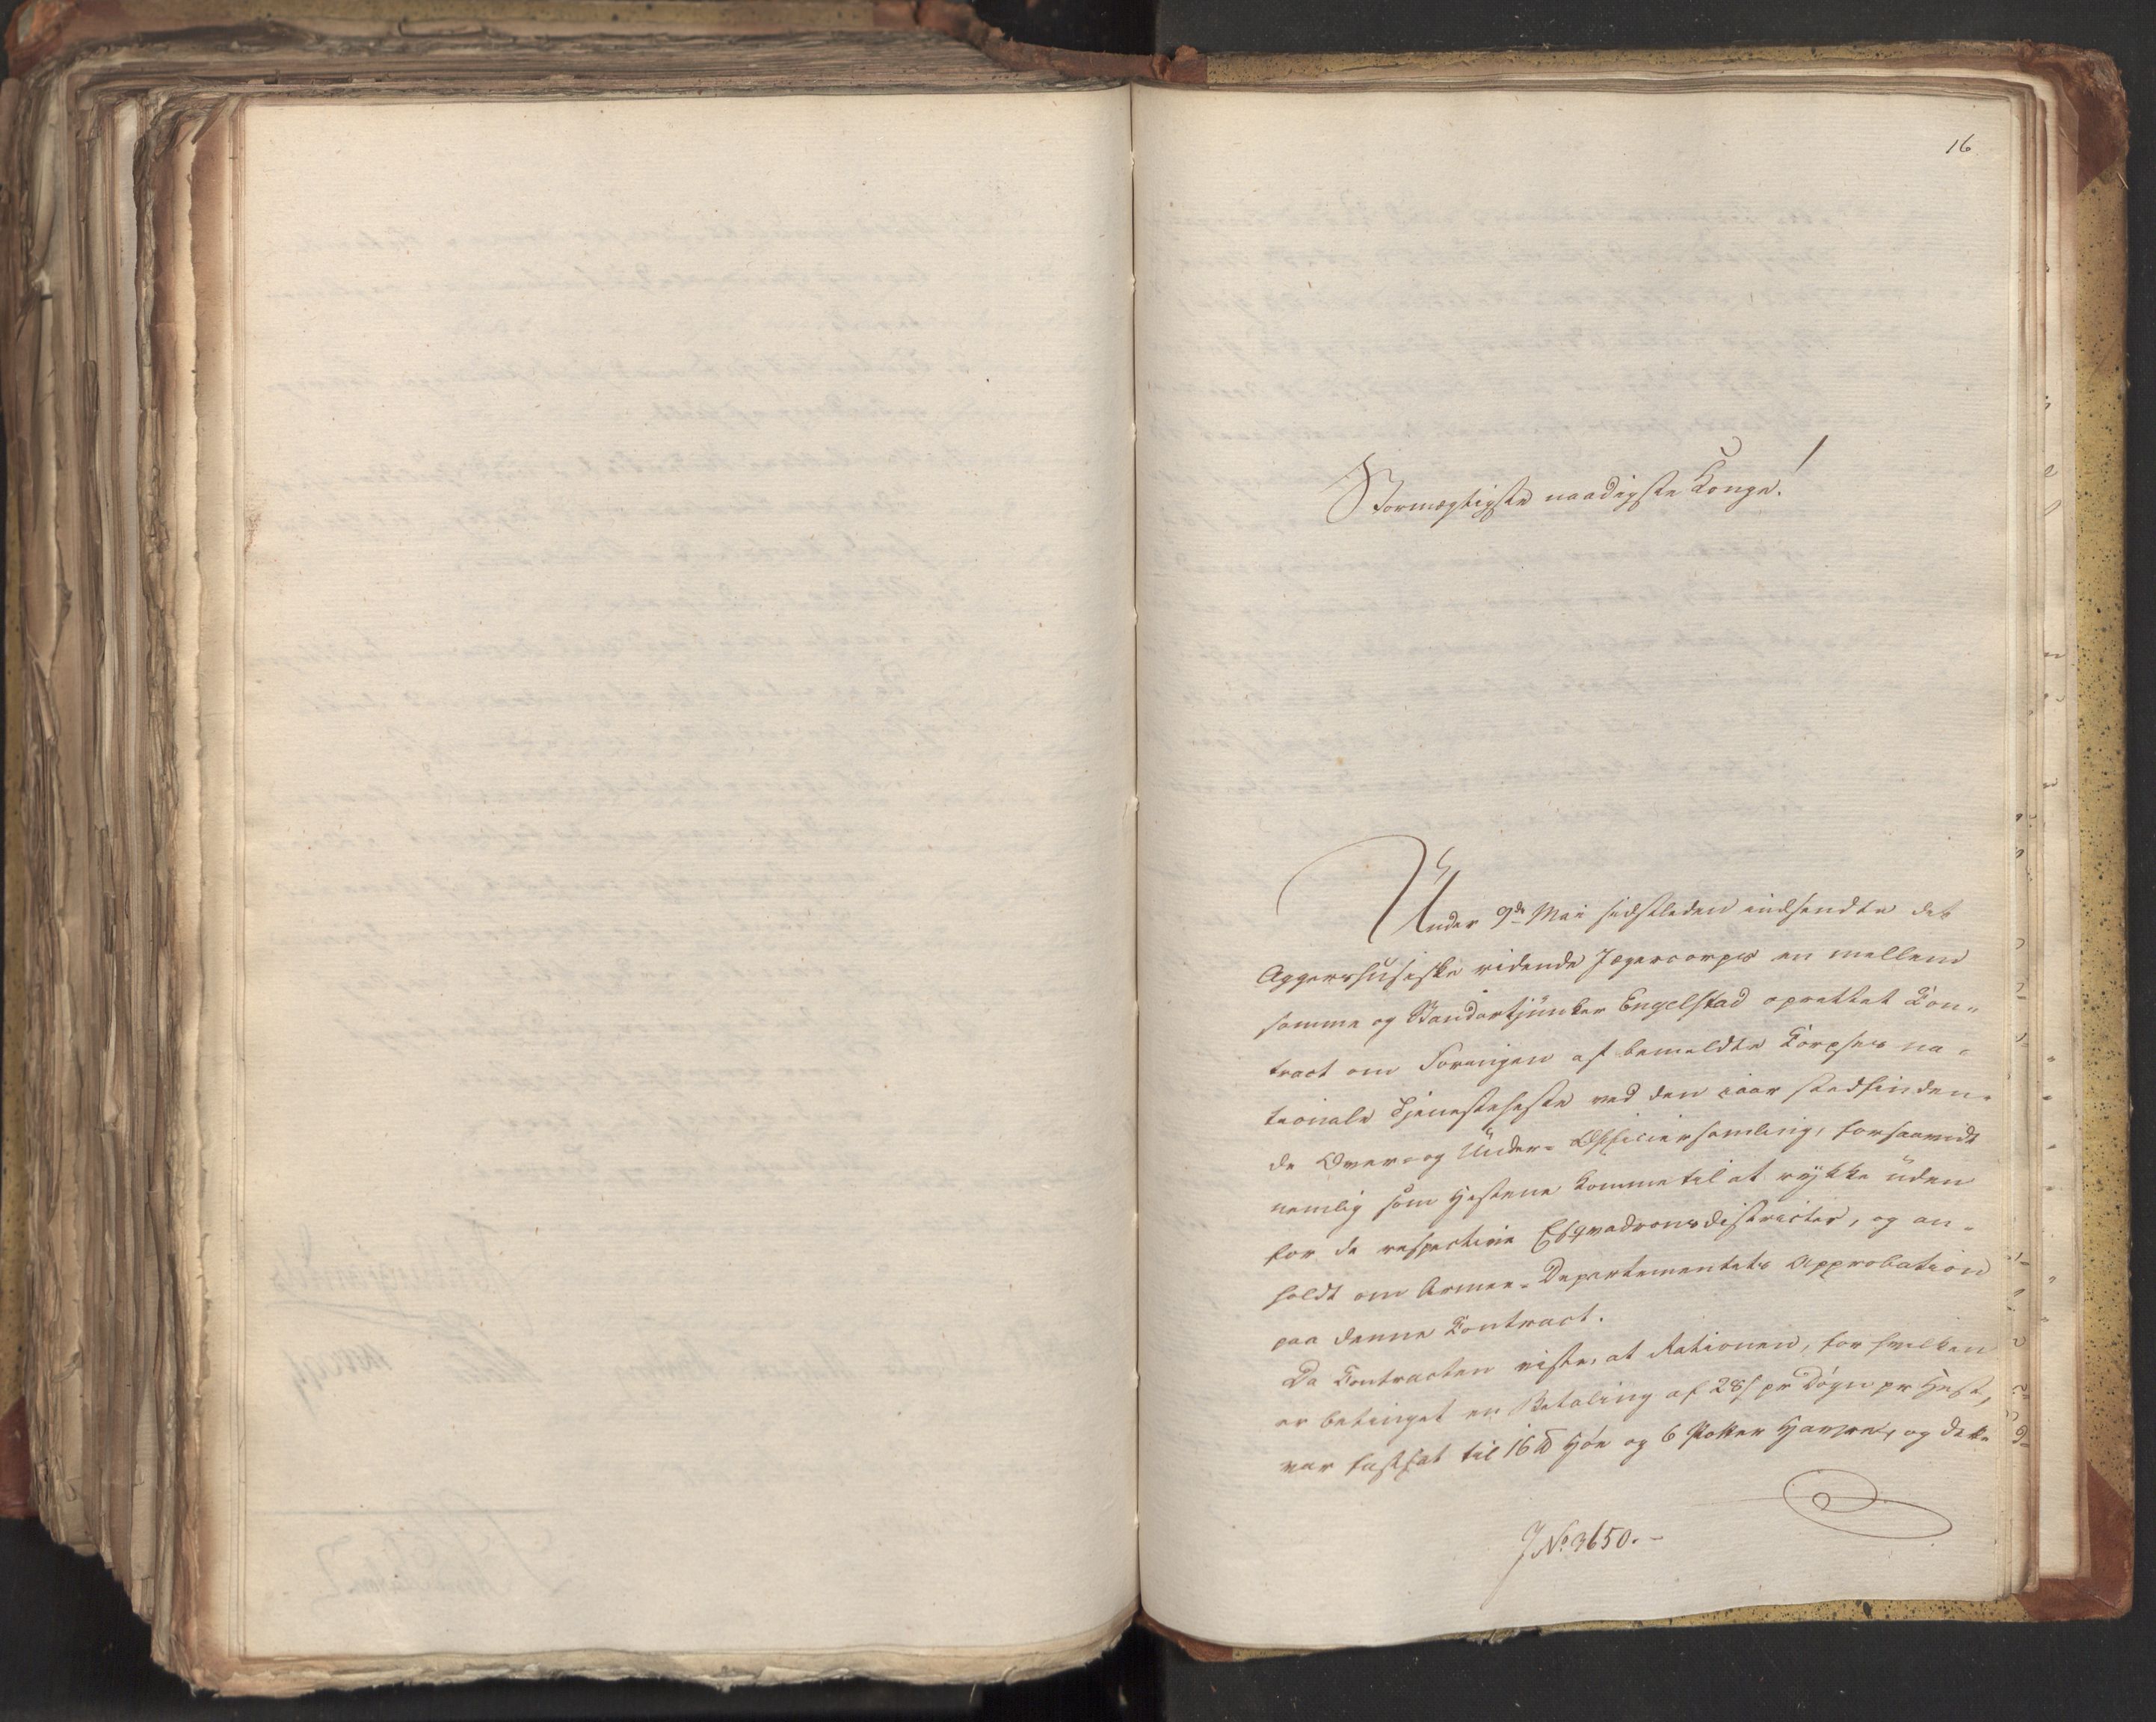 16
Stormægtigste naadigste Konge!
Under 9de Mai sidstleden indsendte det
Aggershusiske ridende Jægercorps en mellem
samme og Standartjunker Engelstad oprettet Con-
tract om Foringen af bemeldte Corpses na-
tionale Tjenesteheste ved den iaar stedfinden-
de Over- og Under-Officiersamling, forsaavidt
nemlig som Hestene komme til at rykke uden
for de respective Esqvadronsdistricter, og an-
holdt om Armee-Departementets Approbation
paa denne Contract.
Da Contracten viste, at Rationen, for hvilken
er betinget en Betaling af 28 s pr Døgn pr Hest,
var fastsat til 16 ℔ Høe og 6 Potter Havre, og dette
J No 3650.-